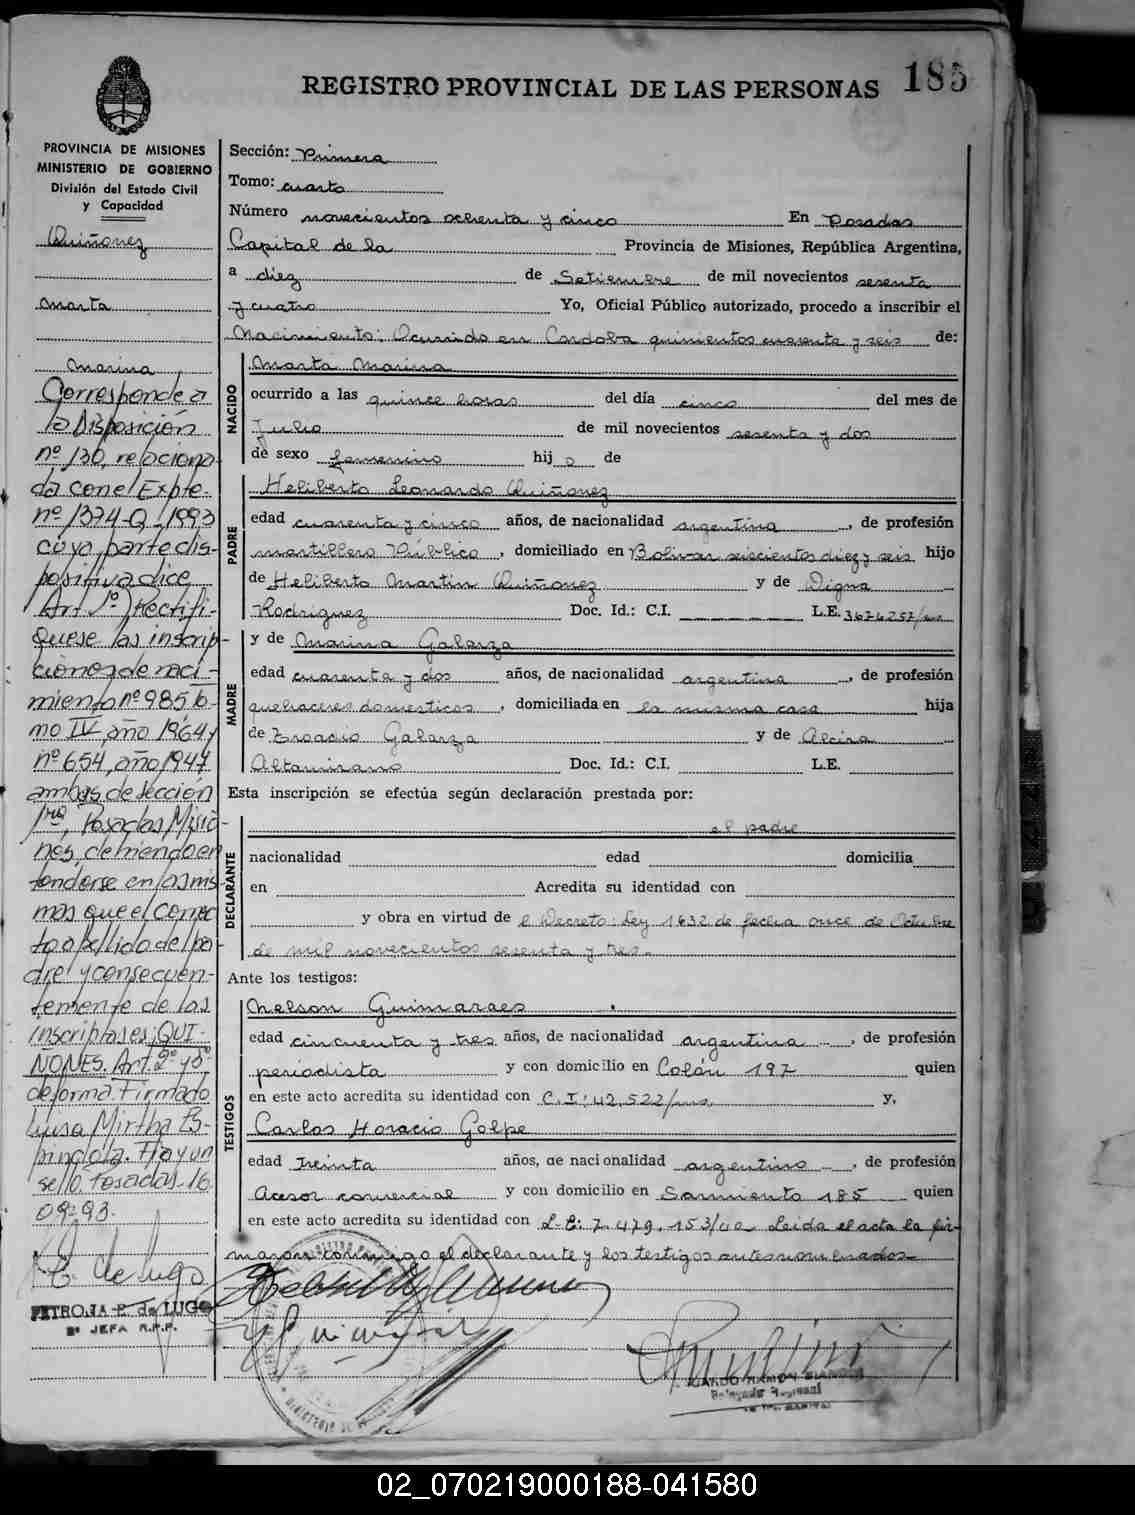 185
REGISTRO PROVINCIAL DE LAS PERSONAS
PROVINCIA DE MISIONES
MINISTERIO DE GOBIERNO
División del Estado Civil
y Capacidad
Quiñonez
Marta
Marina
Corresponde a
la Disposición
nº 130, relaciona
da con el Expte.
nº 1374-Q-1993
cuya parte dis-
positiva dice
Art. 1º) Rectifi-
quese las inscrip-
ciones de naci-
miento nº 985 to-
mo IV, año 1964 y
nº 654, año 1947
ambas de sección
1ra, Posadas Misio-
nes, debiendo en
tenderse en las mis
mas que el correc
to apellido del pa-
dre y consecuen-
temente de las
inscriptas es: QUI-
ÑONES. Art. 2º y 3º
de forma. Firmado
Luisa Mirtha Es-
pindola. Hay un
sello. Posadas. 16
09-93.
PETRONA E. de LUGO
2º JEFA R.P.P.
Sección: Primera
Tomo: cuarto
Número novecientos ochenta y cinco En Posadas
Capital de la Provincia de Misiones, República Argentina,
a diez de Setiembre de mil novecientos sesenta
y cuatro Yo, Oficial Público autorizado, procedo a inscribir el
Nacimiento: Ocurrido en Cordoba quinientos cuarenta y seis de:
NACIDO
Marta Marina
ocurrido a las quince horas del día cinco del mes de
Julio de mil novecientos sesenta y dos
de sexo femenino hij a de
PADRE
Heliberto Leonardo Quiñonez
edad cuarenta y cinco años, de nacionalidad argentina, de profesión
martillero Público, domiciliado en Bolivar seiscientos diez y seis hijo
de Heliberto Martin Quiñonez y de Digna
Rodriguez Doc. Id.: C.I. L.E. 3676257/
MADRE
y de Marina Galarza
edad cuarenta y dos años, de nacionalidad argentina, de profesión
quehaceres domesticos, domiciliada en la misma casa hija
de Eroadio Galarza y de Alcira
Altamirano Doc. Id.: C.I. L.E.
Esta inscripción se efectúa según declaración prestada por:
DECLARANTE
el padre
nacionalidad edad domicilia
en Acredita su identidad con
y obra en virtud de el Decreto: Ley 1632 de fecha once de Octubre
de mil novecientos sesenta y tres.
Ante los testigos:
TESTIGOS
Nelson Guimaraes
edad cincuenta y tres años, de nacionalidad argentina, de profesión
periodista y con domicilio en Colón 197 quien
en este acto acredita su identidad con C.I: 42,522/ y,
Carlos Horacio Golpe
edad treinta años, de nacionalidad argentino, de profesión
Acesor comercial y con domicilio en Sarmiento 185 quien
en este acto acredita su identidad con L.E: 7.479.153/ Leida el acta la fir-
maron conmigo el declarante y los testigos antesnombrados
02_070219000188-041580